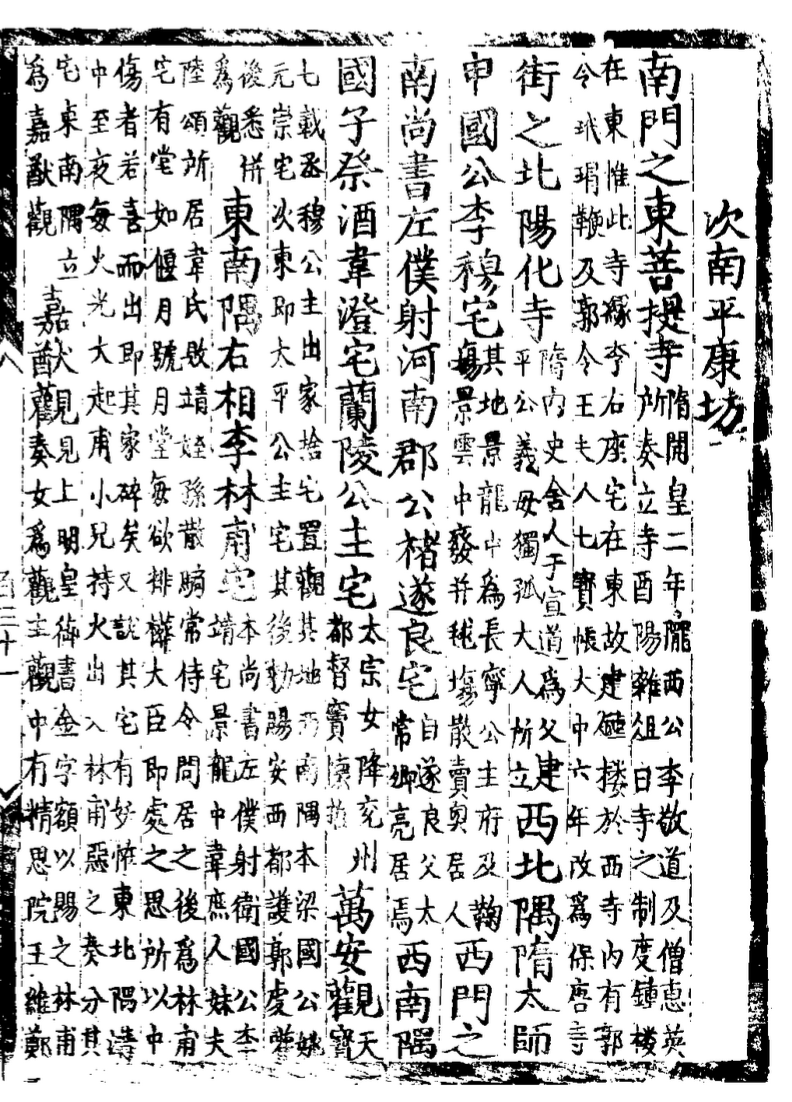 次南平康坊
南門之東菩提寺
隋開皇二年隴西公李敬道及僧惠英
所奏立寺酉陽雜俎曰寺之制度鐘樓
在東惟此寺緣李右座宅在東故建鐘樓於西寺内有郭
令玳瑁鞭及郭令王夫人七寶帳大中六年改為保唐寺
街之北陽化寺
隋内史舍人于宣道為父建
平公義母獨孤大人所立
西北隅隋太師
申國公李穆宅
其地景龍中為長寧公主府及鞠
場景雲中廢并毬塲散賣與居人
西門之
南尚書左僕射河南郡公褚遂良宅
自遂良父太
常卿亮居焉
西南隅
國子祭酒韋澄宅蘭陵公主宅
太宗女降兖州
都督竇懷悊
萬安觀
天
寶
七載丞穆公主出家捨宅置觀其地西南隅本梁國公姚
元崇宅次東即太平公主宅其後勅賜安西都護郭虔瓘
後悉併
為觀
東南隅右相李林甫宅
本尚書左僕射衛國公李
靖宅景龍中韋庶人妹夫
陸頌所居韋氏敗靖姪孫散騎常侍令問居之後為林甫
宅有堂如偃月號月堂每欲排擯大臣即處之思所以中
傷者若喜而出即其家碎矣又說其宅有妖怪東北隅溝
中至夜每火光大起甫小兒持火出入林甫惡之奏分其
宅東南隅立
為嘉猷觀
見上明皇御書金字額以賜之林甫
嘉猷觀奏女為觀主觀中有精思院王維鄭